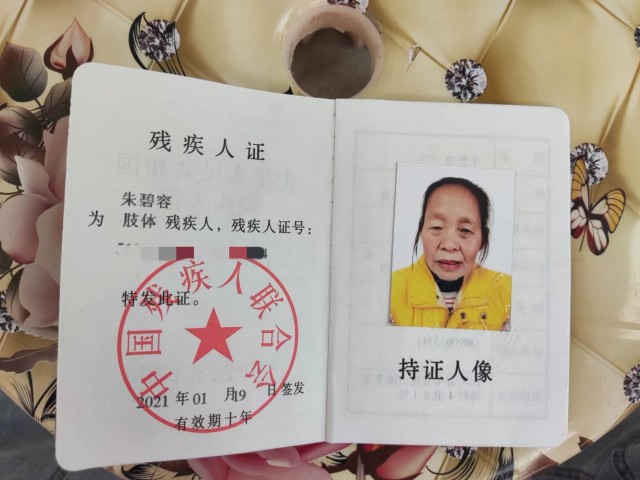 残疾人证
朱碧容
为 肢体 残疾人，残疾人证号：
特发此证。
中国残疾人联合会
2021 年 01 月 19 日 签发
有效期十年
持证人像